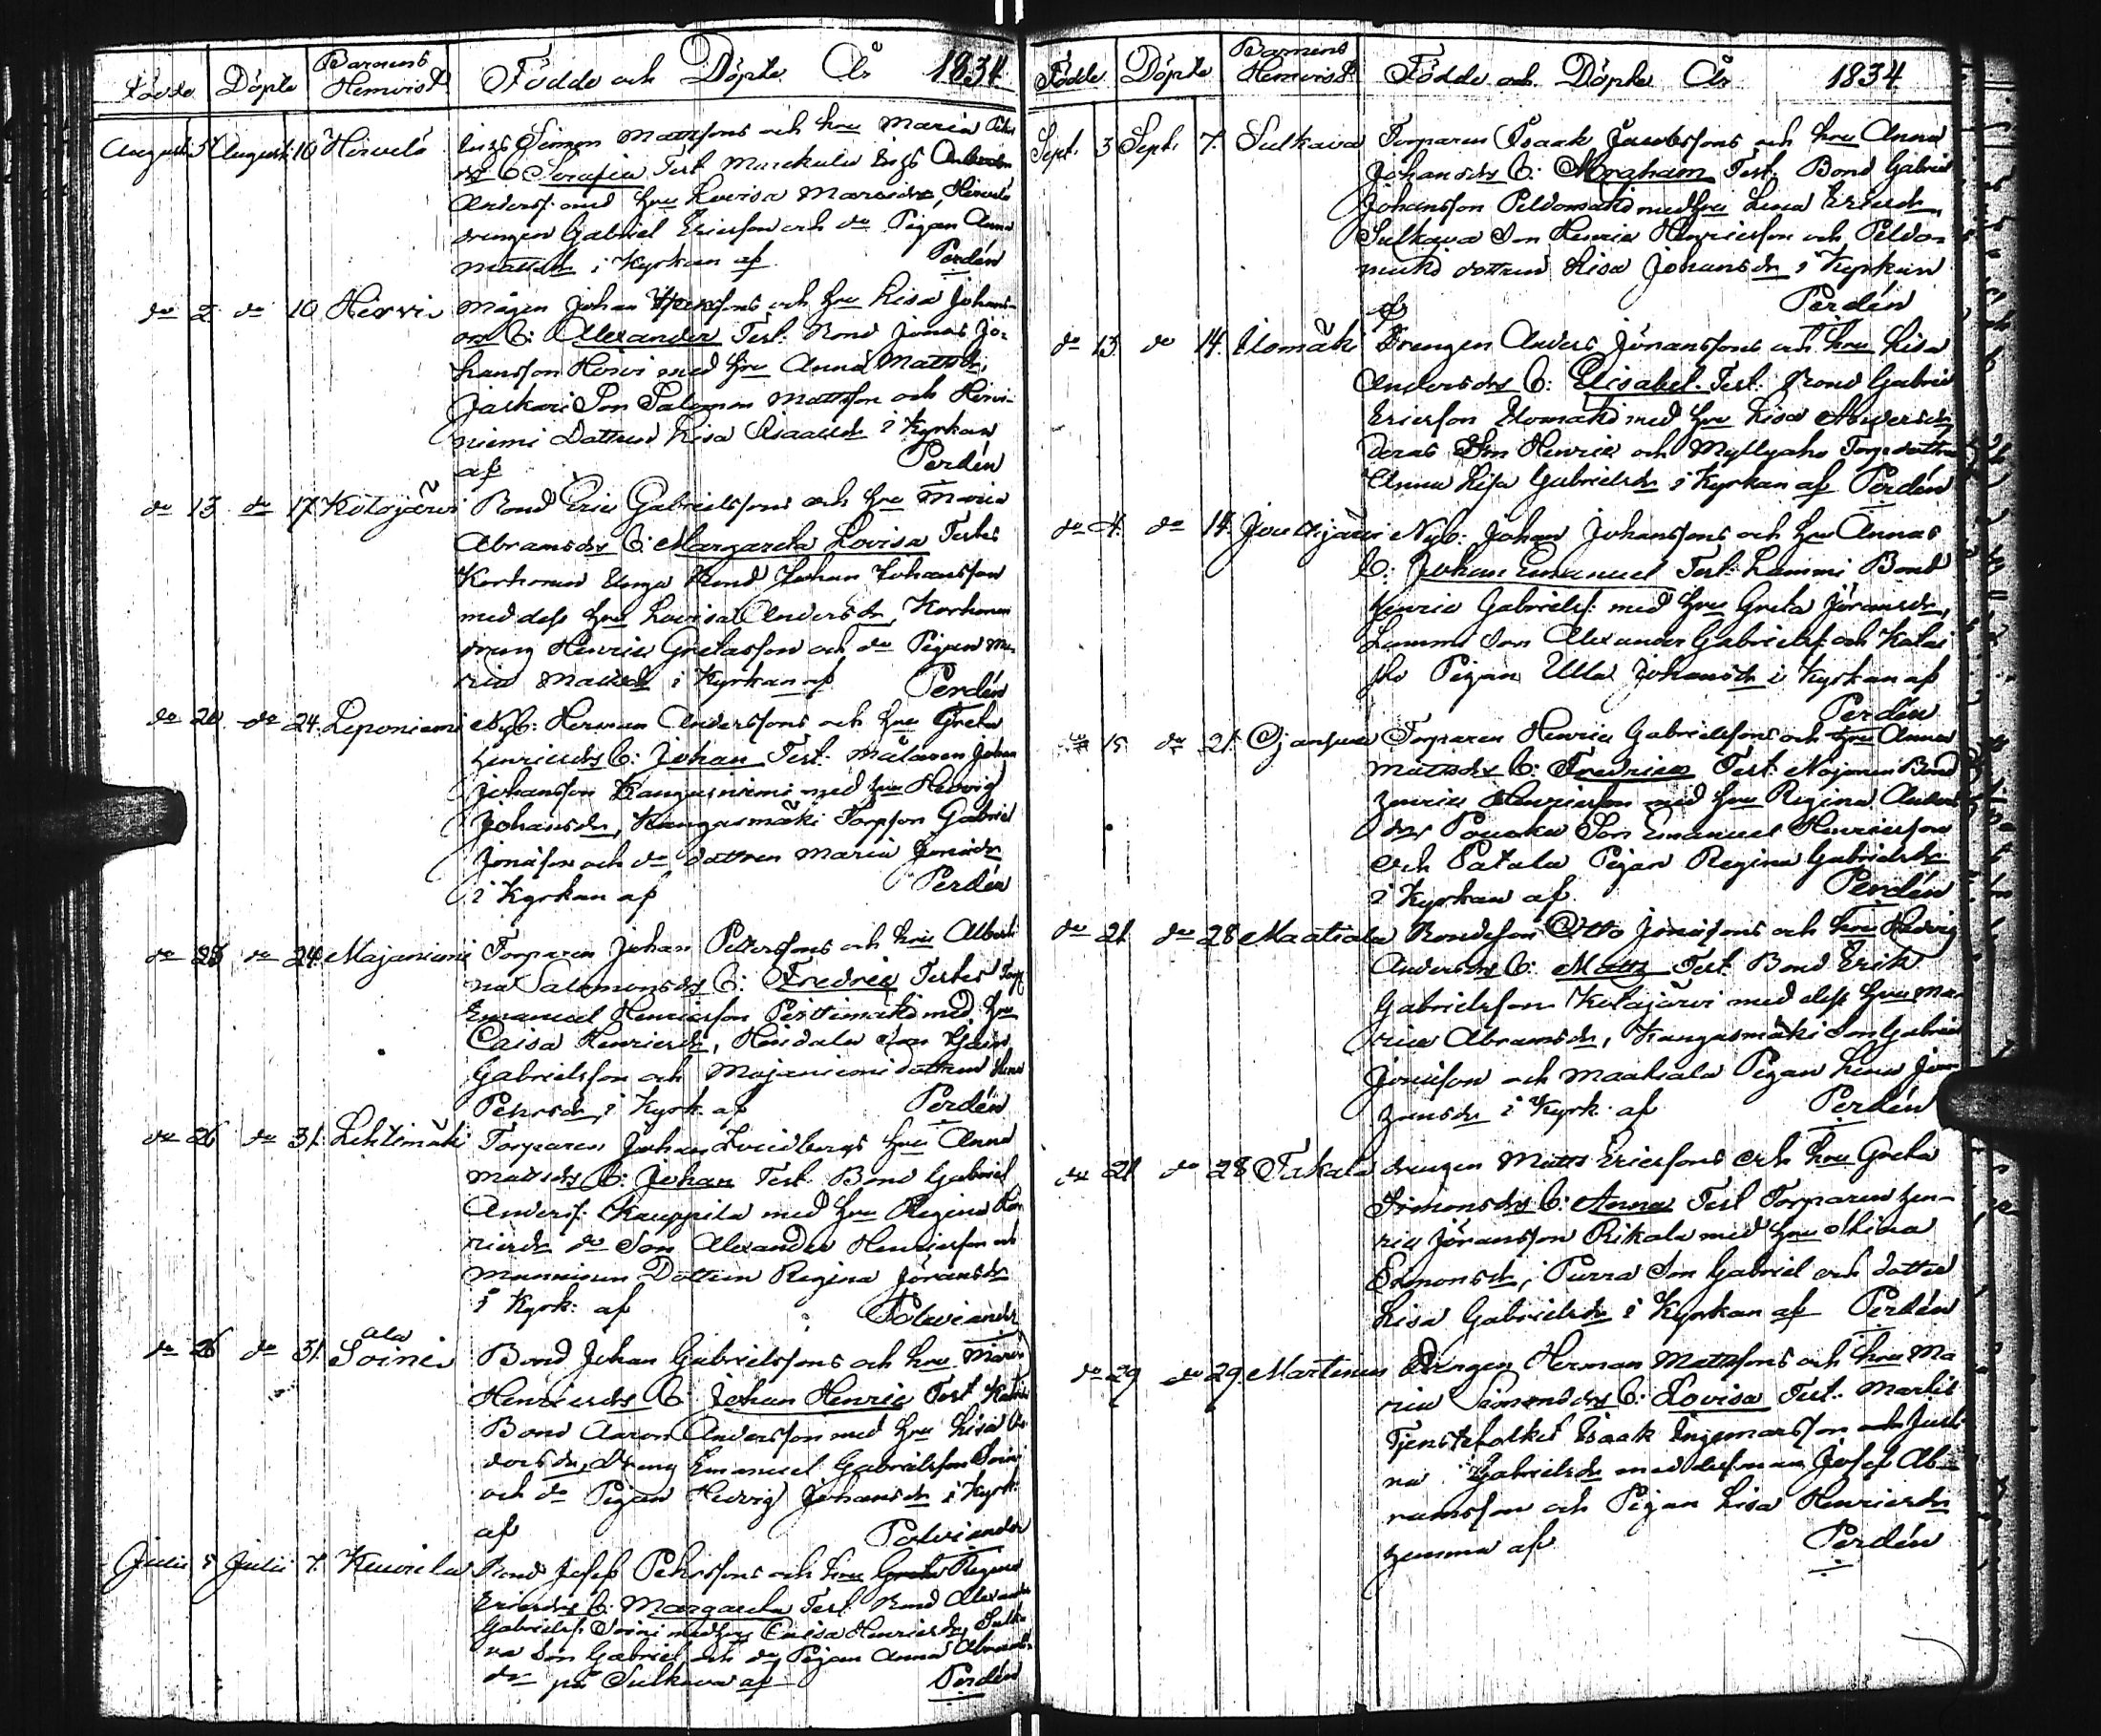 Födde Döpte Barnens Hemvist Födde och Döpte År 1834.
August. 5 August. 10 Hirvelä Ings Simon Mattssons och hru Maria
dr b: Serafia Test. Ings
Anders: med hru Lovisa Hirvelä
drengen Gabriel Ericsson och do Pigan Anna
Mattsdr i Kyrkan af Perdén
do 2 do 10 Hirvi Mågen Johan och hru Lisa Johans-
b: Alexander Test: Bond Jonas Jo-
hansson Hirvi med hru Anna Mattsdr,
Jaskari Son Salomon Mattsson och Hirvi-
niemi Dottren Lisa Isaacsdr i Kyrkan
af Perdén
do 13 do 17 Kolojärvi Bond Eric Gabrielssons och hru Maria
Abramsdrs b: Margareta Lovisa Testes
Korhonen Unga Bond Johan Johansson
med dess hru Lovisa Andersdr, Korhonen
dreng Henric Gretasson och do Pigan Ma-
ria Mattsdr i Kyrkan af Perdén
do 20 do 24. Leponiemi Nyb: Herman Anderssons och hru Greta
Henricsdrs b: Johan Test: Målaren Johan
Johansson Kangasniemi med hru Hedvig
Johansdr, Kangasmäki Torpson Gabriel
Jonasson och do dottren Maria Jonasdr
i Kyrkan af Perdén
do 23 do 24 Majaniemi Torparen Johan Petterssons och hru Alberti-
na Salomonsdrs b: Fredric Testes Torp
Emanuel Henricsson Perttimäki med hru
Caisa Henricsdr, Son
Gabrielsson och Majaniemi dottren Lena
Pehrsdr i Kyrk. af Perdén
do 26 do 31. Lehtimäki Torparen Johan Lindbergs hru Anna
Mattsdrs b: Johan Test. Bond Gabriel
Anders: Kauppila med hru Regina Hen-
ricsdr do Son Alexander Henricsson och
Manninen Dottren Regina Jöransdr
i Kyrk. af Polviander
do 26 do 31. Ala Soini Bond Johan Gabrielssons och hru Maria
Henricsdrs b: Johan Henric Test.
Bond Aaron Andersson med hru Lisa
dr, Dreng Emanuel Gabrielsson Soini
och do Pigan Hedvig Johansdr i Kyrk.
af Polviander
Julii 5 Julii 7. Keurela Bond Josef Pehrssons och hru Greta Regina
Ericsdrs b: Margareta Test. Bond Alexander
Gabrielss: Soini med hru Caisa Henricsdr, Sulka-
va Son Gabriel och do Pigan Anna Abrams-
dr på Sulkava af Perdén
Födde Döpte Barnens Hemvist Födde och Döpte År 1834.
Sept. 3 Sept. 7. Sulkava Torparen Isaak Jacobssons och hru Anna
Johansdrs b: Abraham Test. Bond Gabriel
Johansson Peldomäki med hru Lena Ericsdr,
Sulkava Son Henric Henricsson och Peldo-
mäki dottren Lisa Johansdr i Kyrkan
af Perdén
do 13 do 14. Ilomäki Drengen Anders Jöranssons och hru Lisa
Andersdrs b: Elisabet. Test. Bond Gabriel
Ericsson Ilomäki med hru Lisa Andersdr,
Deras Son Henric och Myllyaho Torp.dottren
Anna Lisa Gabrielsdr i Kyrkan af Perdén
do 4. do 14. Jouttijärvi Nyb: Johan Johanssons och hru Annas
b: Johan Emanuel Test: Lammi Bond
Henric Gabrielss: med hru Greta Jöransdr,
Lammi Son Alexander Gabrielss: och
Pigan Ulla Johansdr i Kyrkan af
Perdén
do 15 do 21. Ojanperä Torparen Henric Gabrielssons och hru Anna
Mattsdrs b: Fredrica Test. Bond
Henric Henricsson med hru Regina Anders
dr, Son Emanuel Henricsson
och Patala Pigan Regina Gabrielsdr
i Kyrkan af Perdén
do 21 do 28 Maatiala Bondeson Otto Jonassons och hru Hedvig
Andersdrs b: Matts Test. Bond Erik
Gabrielsson Kolojärvi med dess hru Ma-
ria Abramsdr, Kangasmäki Son Gabriel
Jonasson och Maatiala Pigan Lena
dr i Kyrk. af Perdén
do 21 do 28 Takala drengen Matts Ericssons och hru Greta
Simonsdrs b: Anna Test. Torparen Hen-
ric Jöransson Rikala med hru Stina
Simonsdr, Purra Son Gabriel och dotter
Lisa Gabrielsdr i Kyrkan af Perdén
do 29 do 29. Martinen Drengen Herman Mattssons och hru Ma
ria Simonsdrs b: Lovisa Test. Martis
Tjenstefolket Isaak Ingemarsson och Justi-
na Gabrielsdr med Josef Ab-
ramsson och Pigan Lisa Henricsdr
hemma af Perdén